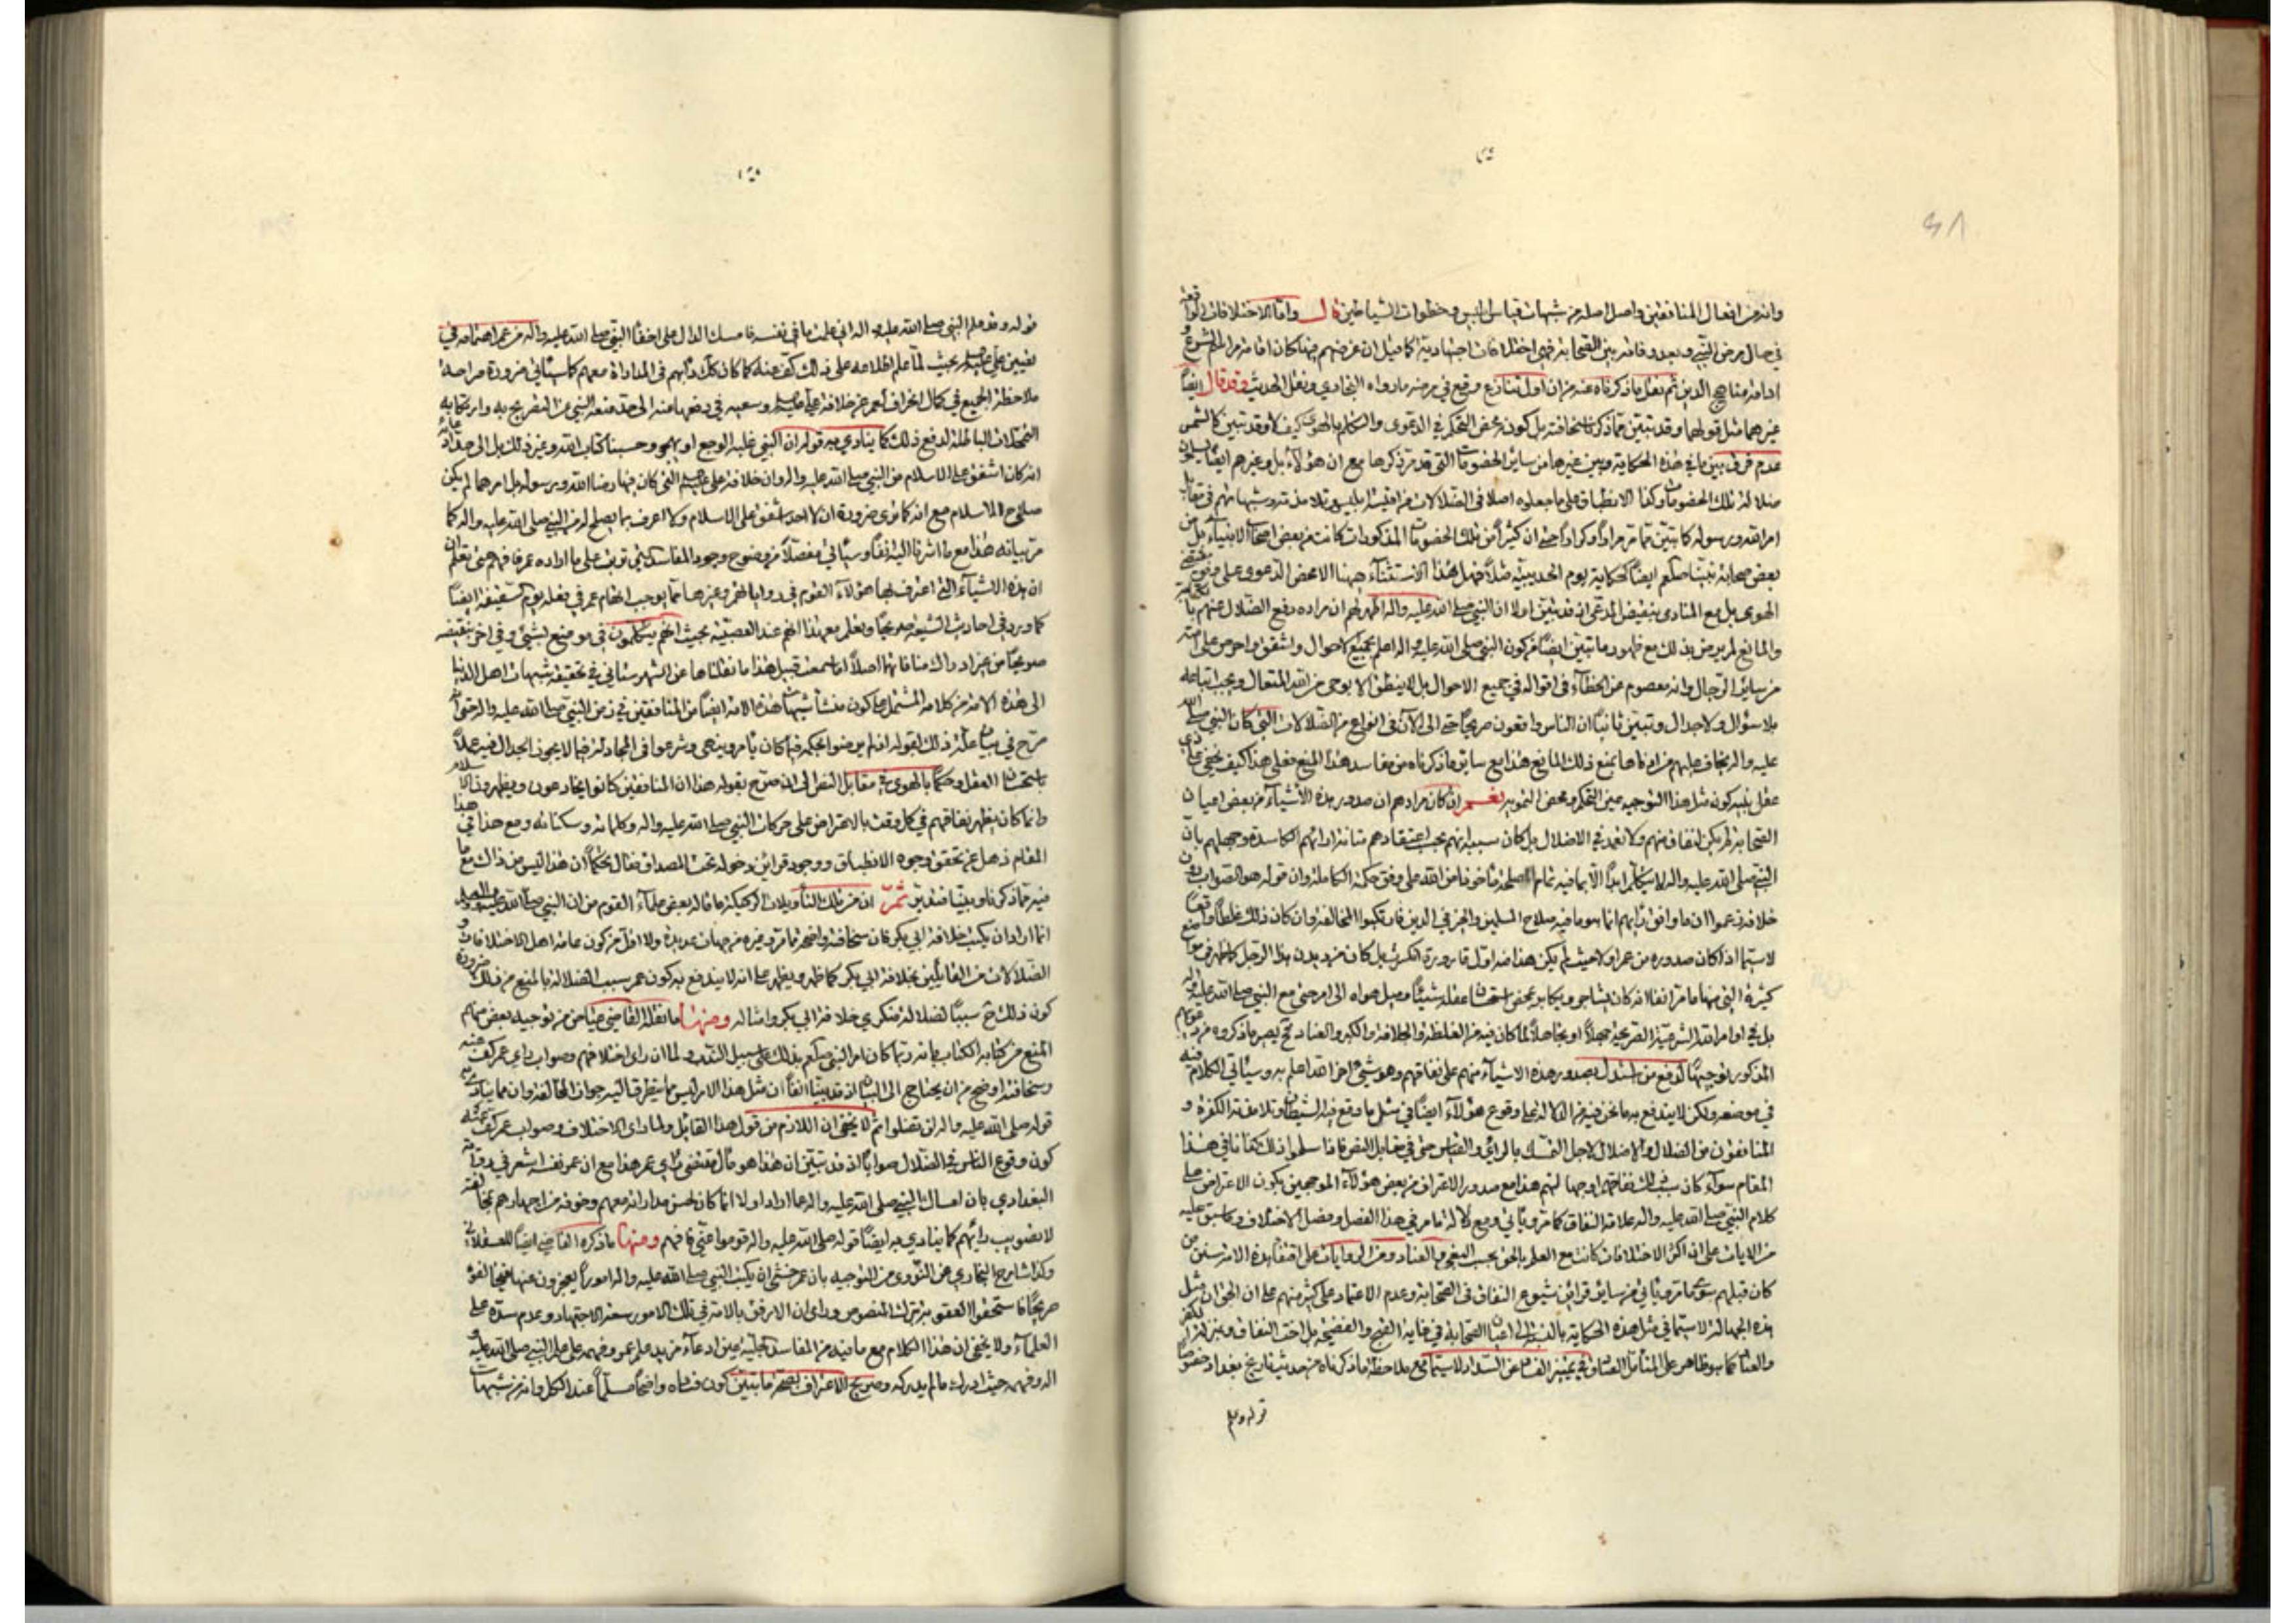 وانه من افعال المنافقين واصل اصله من شبهات قياس ابليس وخطوات الشياطين قال واما الاختلافات الواقعة
في حال مرض النبي وبعد وفاته بين الصحابة فهي اختلافات اجتهادية كما قيل ان غرضهم منها كان اقامة مراسم الشرع و
ادامة مناهج الدين ثم نقل ما ذكرناه عنه من ان اول تنازع وقع في مرضه ما رواه البخاري ونقل الحديث وقد قال ايضا
غيرهما مثل قولهما وقد تبين مما ذكرنا سخافته بل كونه محض التحكم في الدعوى والتكلم بالهوى كيف لا وقد تبين كالشمس
عدم فرق بين ما في هذه الحكاية وبين غيرها من ساير الخصومات التي قد مر ذكرها مع ان هؤلاء بل وغيرهم ايضا
ضلالة تلك الخصومات وكذا الانطباق على ما جعلوه اصلا في الضلالات من اقيسة ابليس وتلامذته وشبهاتهم في مقابل
امر الله ورسوله كما تبين مما مر مرارا وكرارا حتى ان كثيرا من تلك الخصومات المذكورات كانت من بعض اصحاب الانبياء بل من
بعض صحابة نبينا صلعم ايضا كحكاية يوم الحديبية مثلا فهل هذا الاستثناء ههنا الا محض الدعوى على وفق مقتضى
الهوى بل مع المنادي بنقيض المدعى اذ قد تبين اولا ان النبي صلى الله عليه واله اظهر لهم ان مراده دفع الضلال عنهم
والمانع لم يرض بذلك مع ظهور ما تبين ايضا من كون النبي صلى الله عليه واله اعلم بجميع الاحوال واشفق واحرص على امته
من ساير الرجال وانه معصوم عن الخطاء في اقواله في جميع الاحوال بل لا ينطق الا بوحي من الله المتعال ويجب اتباعه
بلا سؤال ولا جدال وتبين ثانيا ان الناس واقعون صريحا حتى الى الآن في انواع من الضلالات التي كان النبي صلى الله
عليه واله يخاف عليهم من اذاها بمنع ذلك المانع هذا مع سابق ما ذكرناه من مفاسد هذا المنع فعلى هذا كيف يخفى على ذي
عقل بليد كون مثل هذا التوجيه عين التحكم ومحض التمويه نعم ان كان مرادهم ان صدور هذه الاشياء من بعض اعيان
الصحابة لم يكن لنفاق منهم ولا تعمد في الاضلال بل كان سببه انهم بحسب اعتقادهم متانة ارائهم الكاسدة وجهلهم بان
النبي صلى الله عليه واله لا يتكلم ابدا الا بما فيه تمام المصلحة مأخوذا من الله على وفق حكمة الكاملة وان قوله هو الصواب دون
خلافه زعموا ان ما وافق رايهم انما هو ما فيه صلاح المسلمين والحزم في الدين فارتكبوا المخالفة وان كان ذلك غلطا واقعا
لا سيما اذا كان صدوره من عمر اولا حيث لم يكن هذا منه اول قارورة انكسرت بل كان من ديدن هذا الرجل كما ظهر من مواضع
كثيرة التي منها ما مر انفا انه كان يشاجر ويكابر بمحض استحسان عقله شيئا وميل هواه الى امر حتى مع النبي صلى الله عليه واله
بل في اوامر الله الشرعية الصريحة جهلا او تجاهلا لما كان فيه من الغلظة والجلافة والكبر والعناد فح يصير ما ذكروه من
المذكور توجيها لدفع من استدل بصدور هذه الاشياء منهم على نفاقهم وهو شيء اخر الله اعلم به وسيأتي الكلام فيه
في موضعه ولكن لا يندفع به ما نحن فيه من الدلالة على وقوع هؤلاء ايضا في مثل ما وقع فيه الشيطان وتلامذته الكفرة و
المنافقون من الضلال والاضلال لاجل التمسك بالراي والقياس حتى في مقابل النص فاذا سلموا ذلك كفانا في هذا
المقام سواء كان سبب ذلك نفاقهم او جهالتهم هذا مع صدور الاعتراف من بعض هؤلاء الموجهين بكون الاعتراض على
كلام النبي صلى الله عليه واله علامة النفاق كما مر ويأتي ومع دلالة ما مر في هذا الفصل وفصل الاختلاف وما سبق عليه
من الايات على ان اكثر الاختلافات كانت مع العلم بالحق بحسب البغي والعناد ومن الروايات على اقتفاء هذه الامة سنن من
كان قبلهم سوى ما مر ويأتي من ساير قراين شيوع النفاق في الصحابة وعدم الاعتماد على كثير منهم على ان الحق ان مثل
هذه الجهالة لا سيما في مثل هذه الحكاية بالنسبة الى اعيان الصحابة في غاية القبح والفضيحة بل اخت النفاق وبنزلة الكفر
والعناد كما هو ظاهر على المتأمل الصادق في تمييز الفساد عن السداد لا سيما مع ملاحظة ما ذكرناه من حديث تاريخ بغداد خصوصا
قوله وعلم
قوله وقد علم النبي صلى الله عليه واله اني علمت ما في نفسه فامسك الدال على اخفاء النبي صلى الله عليه واله من عمر اهتمامه في
تعيين علي عليه السلم بحيث لما علم اطلاعه على ذلك كف عنه كما كان كذلك دأبهم في المداراة معهم كما سيأتي ضرورة صراحة
ملاحظة الجميع في كمال انحراف عمر عن خلافة علي عليه السلم وسعيه في دفعها عنه الى حد منعه النبي عن التصريح به وارتكابه
التمحلات الباطلة لدفع ذلك كما ينادي به قوله ان النبي غلبه الوجع او يهجر وحسبنا كتاب الله وغير ذلك بل الى حد ادعائه
انه كان اشفق على الاسلام من النبي صلى الله عليه واله وان خلافة علي عليه السلم التي كان فيها رضا الله ورسوله بل امرهما لم يكن
صلاح الاسلام مع انه كما ترى ضرورة ان لا احد اشفق على الاسلام ولا اعرف بما يصلح له من النبي صلى الله عليه واله كما
مر بيانه هذا مع ما اشرنا اليه انفا وسيأتي مفصلا من وضوح وجود المفاسد التي ترتبت على ما اراده عمر فافهم حتى تعلم ان
ان هذه الاشياء التي اعترف بها هؤلاء القوم في رواياتهم وغيرها مما يوجب اتهام عمر في فعله يوم السقيفة ايضا
كما ورد في احاديث الشيعة صريحا وتعلم مع هذا انهم عند العصبية بحيث انهم يتكلمون في موضع بشيء وفي اخر بنقيضه
صريحا من غير ادراك منافاتها اصلا اما سمعت قبيل هذا ما نقلناها عن الشهرستاني في تحقيقه شبهات اهل الدنيا
الى هذه الامة من كلامه المشتمل على كون منشأ شبهات هذه الامة ايضا من المنافقين في زمن النبي صلى الله عليه واله حتى انه
صرح في بيان علة ذلك بقوله اذ لم يرضوا بحكمه فيما كان يأمر وينهى وشرعوا في المجادلة فيما لا يجوز الجدال فيه عملا
باستحسان العقل وحكما بالهوى في مقابل النص الى ان صرح بقوله هذا ان المنافقين كانوا يخادعون ويظهرون الاسلام
وانما كان يظهر نفاقهم في كل وقت بالاعتراض على حركات النبي صلى الله عليه واله وكلماته وسكناته ومع هذا في هذا
المقام ذهل عن تحقق وجوه الانطباق ووجود قراين دخوله تحت المصداق فقال تحكما ان هذا ليس من ذاك مع ما
فيه مما ذكرنا وبينا فتدبر ثم ان من تلك التأويلات الركيكة ما قاله بعض علماء القوم من ان النبي صلى الله عليه واله
انما اراد ان يكتب خلافة ابي بكر فان سخافته واضحة مما مر وغيره من جهات عديدة ولا اقل من كون عامة اهل الاختلافات و
الضلالات من القائلين بخلافة ابي بكر كما ظهر ويظهر على انه لا يندفع به كون عمر سبب الضلالة بالمنع من ذلك ضرورة
كون ذلك ح سببا لضلالة منكري خلافة ابي بكر وامثاله ومنها ما نقله القاضي عياض من توجيه بعض منهم
المنع من كتابه الكتاب بانه ربما كان امر النبي صلعم بذلك على سبيل الندب ولما ان راى اختلافهم وصواب راي عمر كف عنه
وسخافته اوضح من ان يحتاج الى البيان اذ قد بينا انفا ان مثل هذا الامر ليس مما يتطرق اليه جواز المخالفة وان مما ينادي به
قوله صلى الله عليه واله لن تضلوا ثم لا يخفى ان اللازم من قول هذا القائل ولما راى الاختلاف وصواب عمر كف عنه
كون وقوع الناس في الضلال صوابا اذ قد تبين ان هذا هو مآل مقتضى راي عمر هذا مع ان عمر نفسه اشعر في رواية
البغدادي بان امساك النبي صلى الله عليه واله عما اراد اولا انما كان لحسن مداراته معهم وخوفه من اجهارهم بمخالفته
لا تصويب رايهم كما ينادي به ايضا قوله صلى الله عليه واله قوموا عني فافهم ومنها ما ذكره القاضي ايضا للعسقلاني
وكذا شارح البخاري عن النووي من التوجيه بان عمر خشي ان يكتب النبي صلى الله عليه واله امورا يعجزون عنها
صريحا فاستحقوا العقوبة بترك المنصوص وراى ان الارفق بالامة في تلك الامور سعة الاجتهاد وعدم سده على
العلماء ولا يخفى ان هذا الكلام مع ما فيه من المفاسد الجلية عين ادعاء مزيد علم عمر وفهمه على علم النبي صلى الله عليه و
اله وفهمه حيث ادرك ما لم يدركه وصريح الاعتراف بصحة ما تبين كون فساده واضحا مسلما عند الكل وانه من شبهات